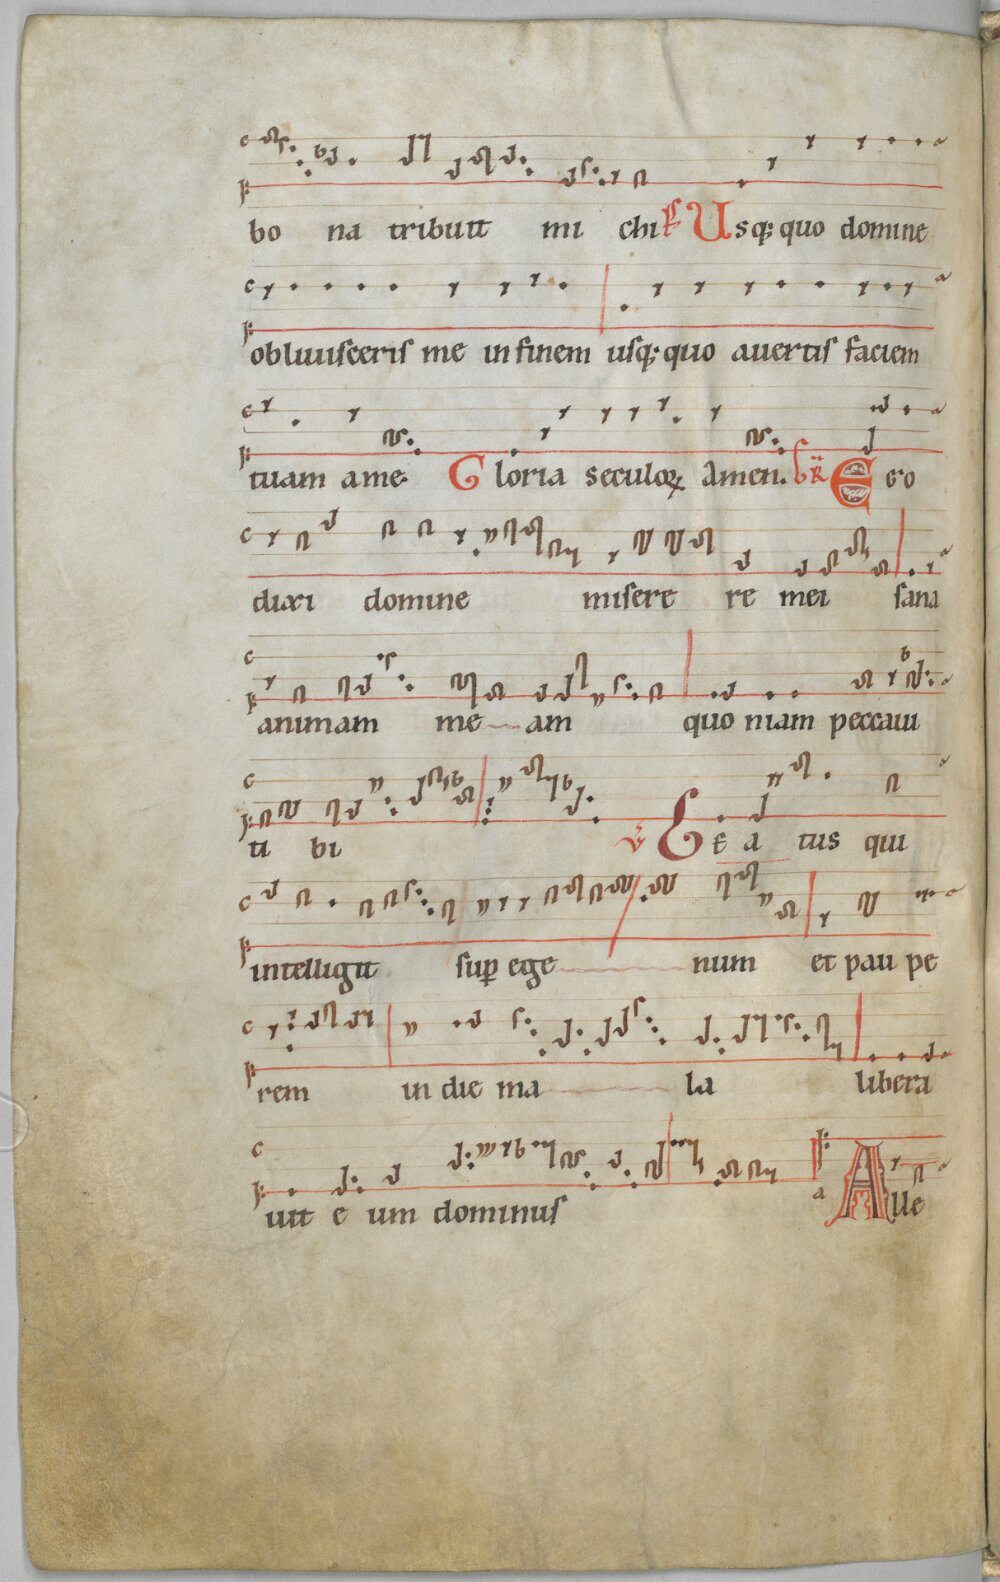 bo na tribuit mi chi Usq; quo domine
obliuisceris me in finem usq; quo auertis faciem
tuam a me. Gloria seculoꝝ Amen. Ego
dixi domine misere re mei sana
animam me am quo niam peccaui
ti bi ℣ Be a tus qui
intelligit sup ege num et pau pe
rem in die ma la libera
uit e um dominus Alle